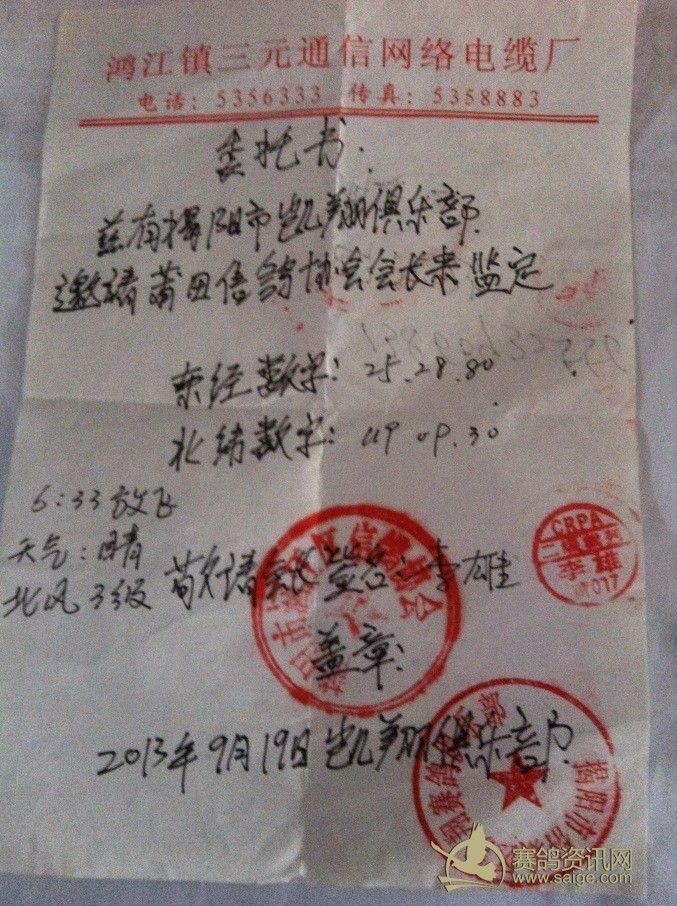 鸿江镇三元通信网络电缆厂
电话：5356333 传真：5358883
委托书.
兹有揭阳市凯翔俱乐部.
邀请莆田信鸽协会会长来监定
东经数字：25.28.80
北纬数字：119 09.30
6：33放飞
天气：晴
北风3级
敬请会长签名：李雄
CRPA
二级裁判
李雄
017
盖章：
2013年9月19日凯翔俱乐部
赛鸽资讯网
www.saige.com